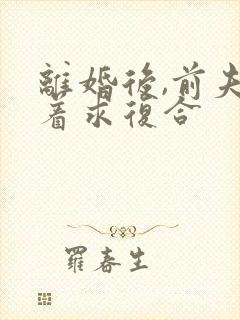 離婚後,前夫
着求復合
羅春生